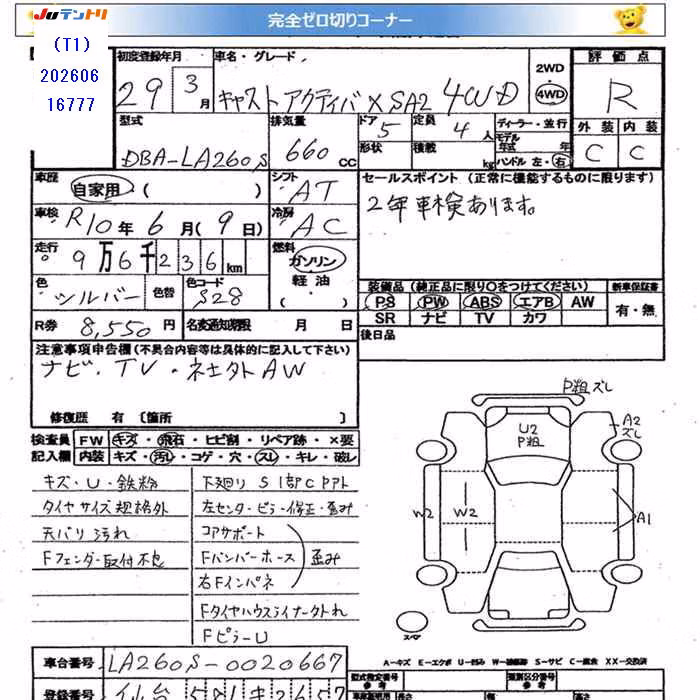 JUテントリ 完全ゼロ切りコーナー
(T1)
202606
16777
初度登録年月 車名・グレード 2WD 評価点
29年 3月 キャスト アクティバ X SA2 4WD 4WD R
型式 排気量 ドア 定員 ディーラー・並行 外装 内装
DBA-LA260S 660cc 5 4人 モデル年式 年 C C
形状 積載 kg ハンドル 左・右
車歴 自家用 ( ) シフト AT セールスポイント (正常に機能するものに限ります)
車検 R10年6月(9日) 冷房 AC 2年車検あります。
走行 9万6千236km 燃料 ガソリン
軽油 装備品 (純正品に限り○をつけてください) 新車保証書
色 シルバー 色替 色コード S28 ( ) PS PW ABS エアB AW 有・無
SR ナビ TV カワ
R券 8,550円 名変通知期限 月 日 後日品
注意事項申告欄(不具合内容等は具体的に記入して下さい)
ナビ・TV・ネ土外AW
修復歴 有 〔箇所 〕
検査員 FW キズ・飛石・ヒビ割・リペア跡・×要
記入欄 内装 キズ・汚れ・コゲ・穴・スレ・キレ・破レ
キズ・U・鉄粉
タイヤサイズ規格外
天バリ汚れ
Fフェンダー取付不良
下廻りS 1部Cアト
左センターピラー修正・歪み
コアサポート
Fバンパーホース 歪み
右Fインパネ
Fタイヤハウスライナー外れ
FピラーU
P粗 ズレ
U2
P粗
A2
ズレ
W2 W2 A1
スペア
車台番号 LA260S-0020667 A-キズ E-エクボ U-凹み S-サビ C-腐食 XX-交換済
登録番号 仙台 581 2657 型式指定番号 類別区分番号